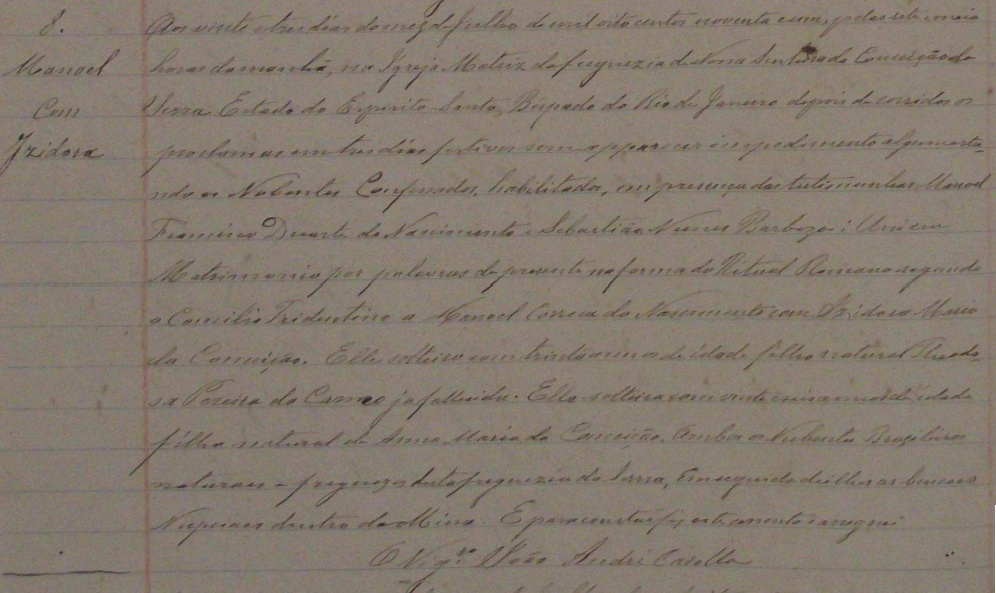 8.
Manoel
Com
Izidora
Aos vinte e tres dias do mez de Julho de mil oito centos noventa e um, pelas sete e meia
horas da manhã, na Igreja Matriz da freguezia de Nossa Senhora da Conceição da
Serra Estado do Espirito-Santo, Bispado do Rio de Janeiro depois de corridos os
proclamas em tres dias festivos sem apparecer impedimento algum esta-
ndo os Nubentes Confessados, habilitados, em presença das testimunhas Manoel
Francisco Duarte do Nascimento e Sebastião Nunes Barboza; Uni em
Matrimonio por palavras de presente na forma do Ritual Romano segundo
o Concilio Tridentino a Manoel Correa do Nascimento com Izidora Maria
da Conceição. Elle solteiro com trinta annos de idade filho natural
Pereira do Carmo ja fallecida. Ella solteira com vinte e cinco annos de idade
filha natural de Anna Maria da Conceição. Ambos os Nubentes Brazileiros
naturaes e freguezes desta freguezia da Serra, Em seguida dei lhes as bençoes
Nupciaes dentro da Missa. E para constar fiz este assento e assignei
O Vigr.ro João André Casella